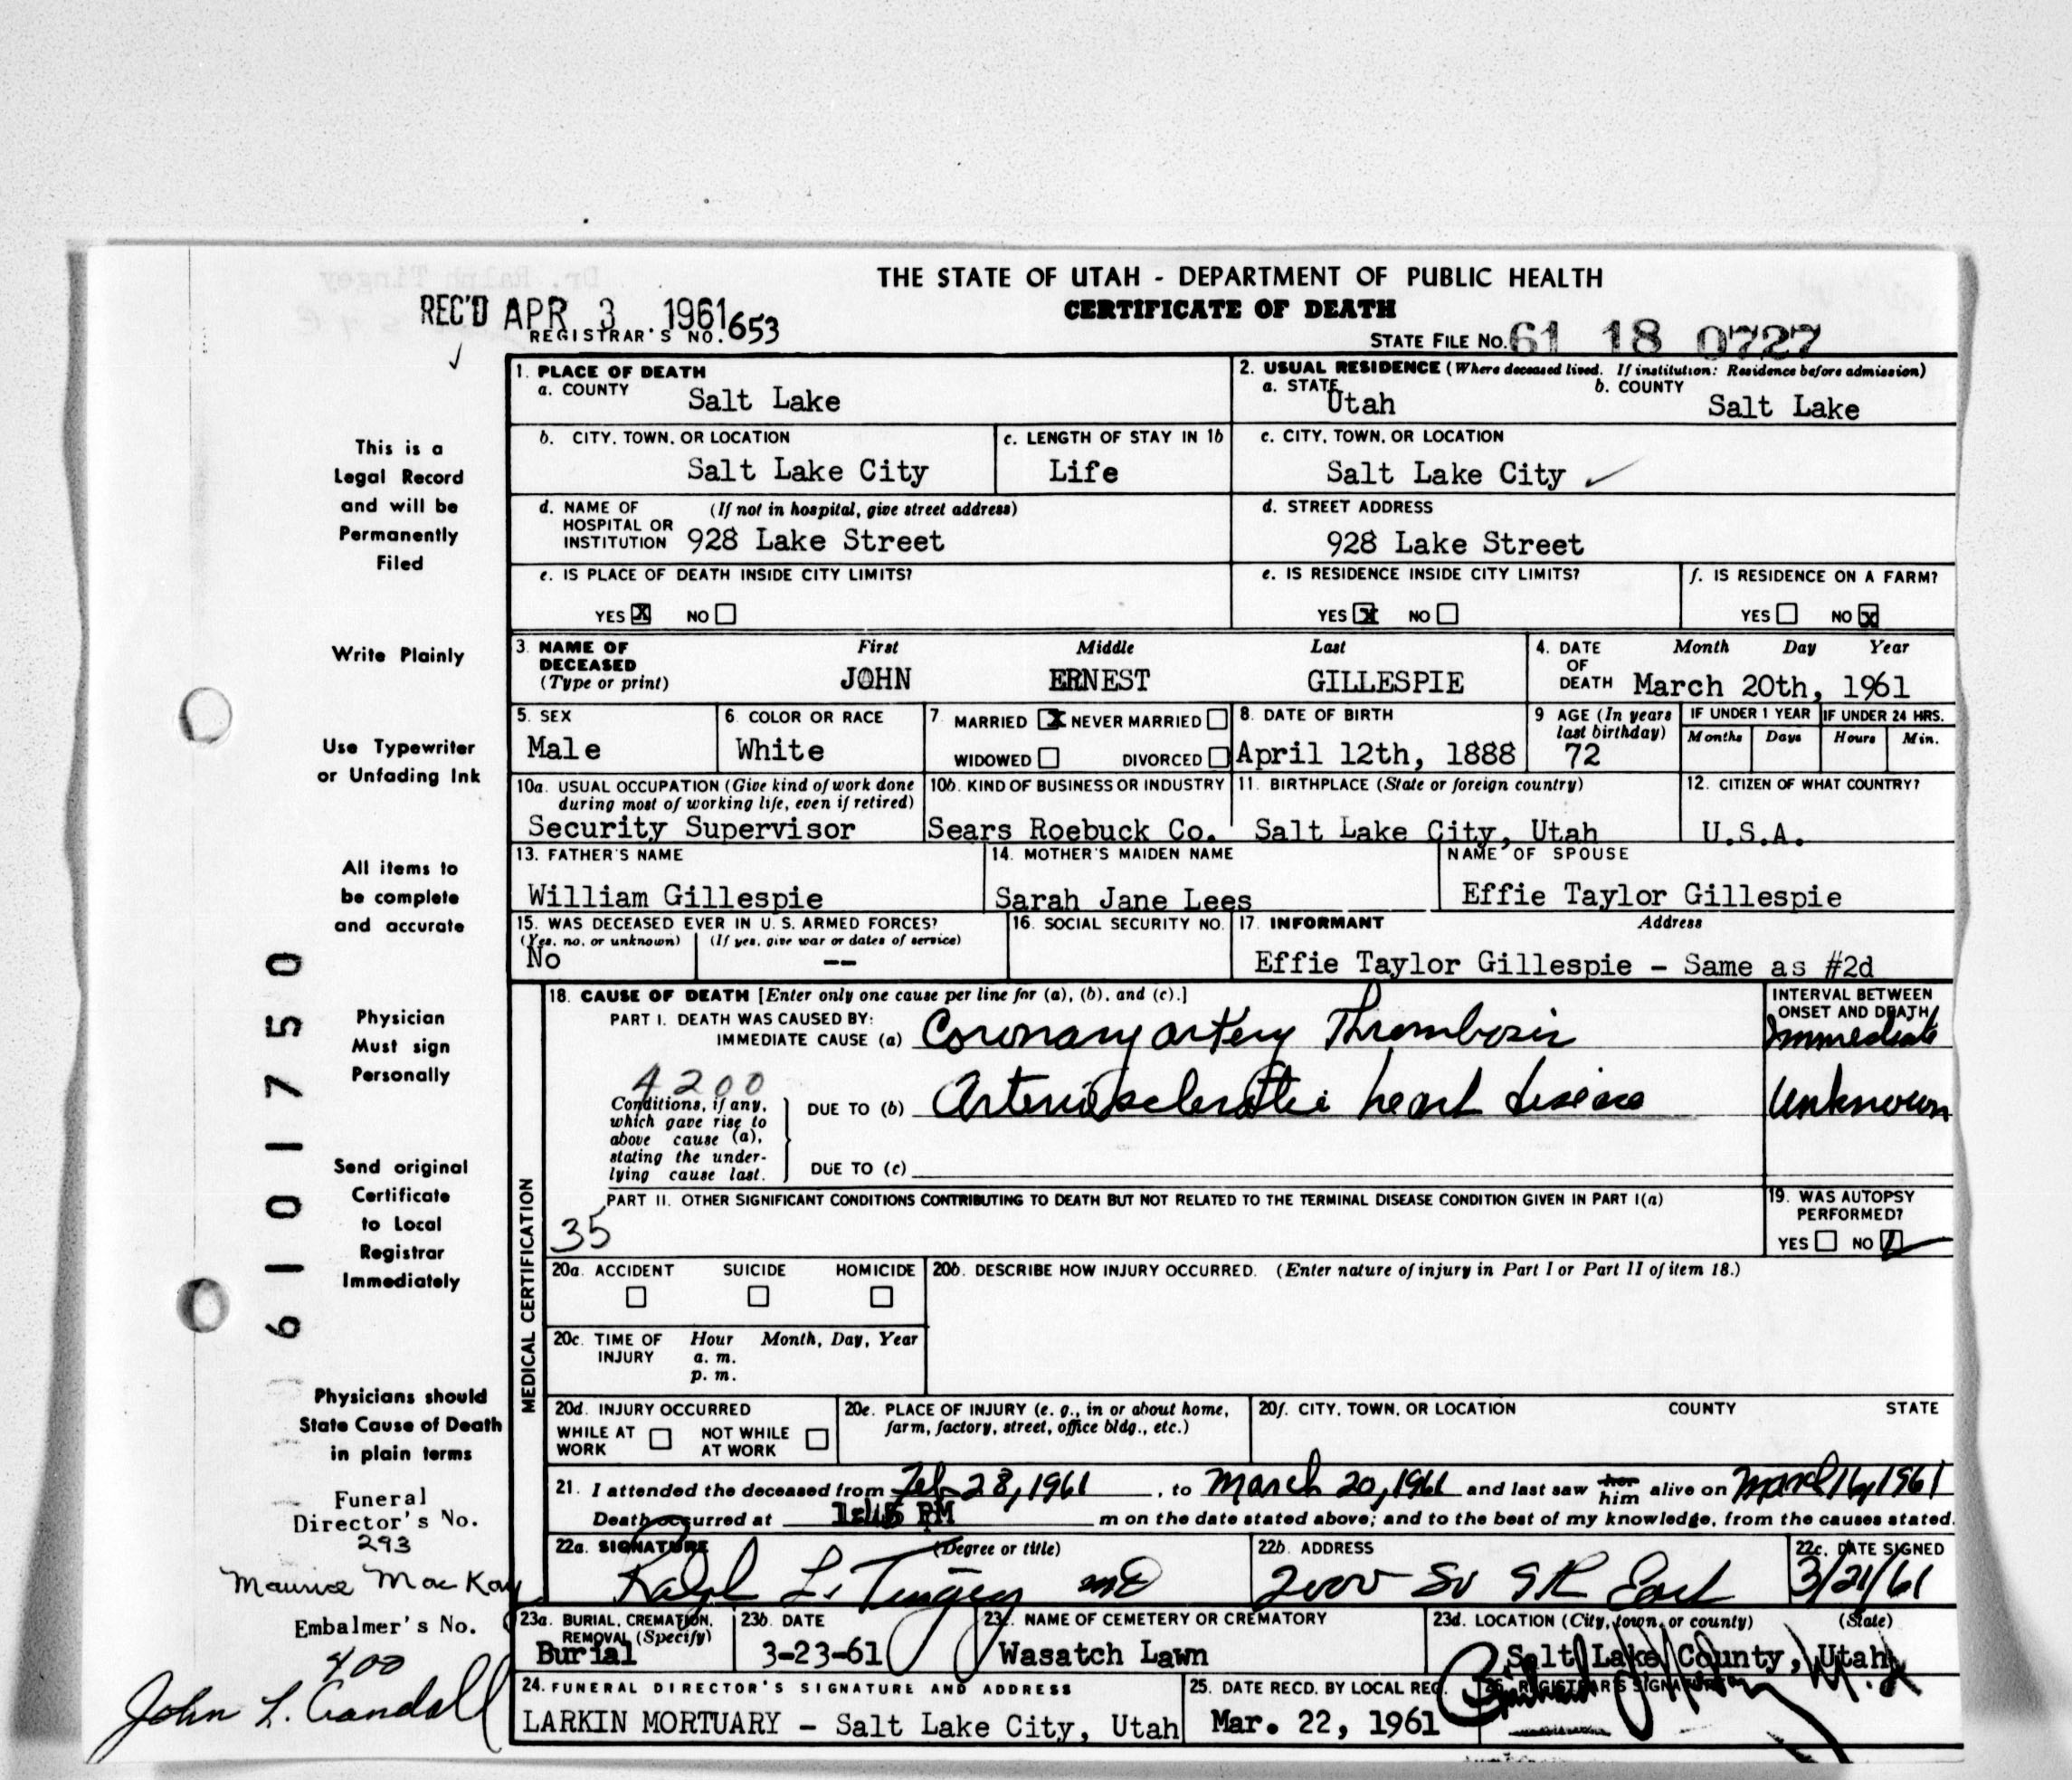 Dr. Ralph Tingey
THE STATE OF UTAH - DEPARTMENT OF PUBLIC HEALTH
CERTIFICATE OF DEATH
REC'D APR 3 1961
REGISTRAR'S NO. 653
STATE FILE NO. 61 18 0727
This is a
Legal Record
and will be
Permanently
Filed
Write Plainly
Use Typewriter
or Unfading Ink
All items to
be complete
and accurate
Physician
Must sign
Personally
Send original
Certificate
to Local
Registrar
Immediately
Physicians should
State Cause of Death
in plain terms
Funeral
Director's No.
293
Maurice MacKay
Embalmer's No.
400
John L. Crandall
61 01750
1. PLACE OF DEATH
a. COUNTY Salt Lake
2. USUAL RESIDENCE (Where deceased lived. If institution: Residence before admission)
a. STATE Utah b. COUNTY Salt Lake
b. CITY, TOWN, OR LOCATION Salt Lake City
c. LENGTH OF STAY IN 1b Life
c. CITY, TOWN, OR LOCATION
Salt Lake City
d. NAME OF HOSPITAL OR INSTITUTION (If not in hospital, give street address)
928 Lake Street
d. STREET ADDRESS
928 Lake Street
e. IS PLACE OF DEATH INSIDE CITY LIMITS?
YES X NO
e. IS RESIDENCE INSIDE CITY LIMITS?
YES X NO
f. IS RESIDENCE ON A FARM?
YES NO X
3. NAME OF DECEASED (Type or print)
First Middle Last
JOHN ERNEST GILLESPIE
4. DATE OF DEATH Month Day Year
March 20th, 1961
5. SEX
Male
6. COLOR OR RACE
White
7 MARRIED X NEVER MARRIED
WIDOWED DIVORCED
8. DATE OF BIRTH
April 12th, 1888
9 AGE (In years last birthday)
72
IF UNDER 1 YEAR IF UNDER 24 HRS.
Months Days Hours Min.
10a. USUAL OCCUPATION (Give kind of work done during most of working life, even if retired)
Security Supervisor
10b. KIND OF BUSINESS OR INDUSTRY
Sears Roebuck Co.
11. BIRTHPLACE (State or foreign country)
Salt Lake City, Utah
12. CITIZEN OF WHAT COUNTRY?
U.S.A.
13. FATHER'S NAME
William Gillespie
14. MOTHER'S MAIDEN NAME
Sarah Jane Lees
NAME OF SPOUSE
Effie Taylor Gillespie
15. WAS DECEASED EVER IN U. S. ARMED FORCES?
(Yes, no, or unknown) (If yes, give war or dates of service)
No --
16. SOCIAL SECURITY NO.
17. INFORMANT Address
Effie Taylor Gillespie - Same as #2d
MEDICAL CERTIFICATION
18. CAUSE OF DEATH [Enter only one cause per line for (a), (b), and (c).]
INTERVAL BETWEEN ONSET AND DEATH
PART I. DEATH WAS CAUSED BY:
IMMEDIATE CAUSE (a) Coronary artery Thrombosis Immediate
4200
Conditions, if any, which gave rise to above cause (a), stating the underlying cause last.
DUE TO (b) Arteriosclerotic heart disease Unknown
DUE TO (c)
PART II. OTHER SIGNIFICANT CONDITIONS CONTRIBUTING TO DEATH BUT NOT RELATED TO THE TERMINAL DISEASE CONDITION GIVEN IN PART I(a)
35
19. WAS AUTOPSY PERFORMED?
YES NO
20a. ACCIDENT SUICIDE HOMICIDE
20b. DESCRIBE HOW INJURY OCCURRED. (Enter nature of injury in Part I or Part II of item 18.)
20c. TIME OF INJURY Hour Month, Day, Year
a. m.
p. m.
20d. INJURY OCCURRED
WHILE AT WORK NOT WHILE AT WORK
20e. PLACE OF INJURY (e. g., in or about home, farm, factory, street, office bldg., etc.)
20f. CITY, TOWN, OR LOCATION COUNTY STATE
21. I attended the deceased from Feb 28, 1961, to March 20, 1961 and last saw her him alive on March 16, 1961
Death occurred at 1:45 PM m on the date stated above; and to the best of my knowledge, from the causes stated.
22a. SIGNATURE (Degree or title)
Ralph L. Tingey MD
22b. ADDRESS
2000 So 9th East
22c. DATE SIGNED
3/21/61
23a. BURIAL, CREMATION, REMOVAL (Specify)
Burial
23b. DATE
3-23-61
23c. NAME OF CEMETERY OR CREMATORY
Wasatch Lawn
23d. LOCATION (City, town, or county) (State)
Salt Lake County, Utah
24. FUNERAL DIRECTOR'S SIGNATURE AND ADDRESS
LARKIN MORTUARY - Salt Lake City, Utah
25. DATE RECD. BY LOCAL REG.
Mar. 22, 1961
26. REGISTRAR'S SIGNATURE